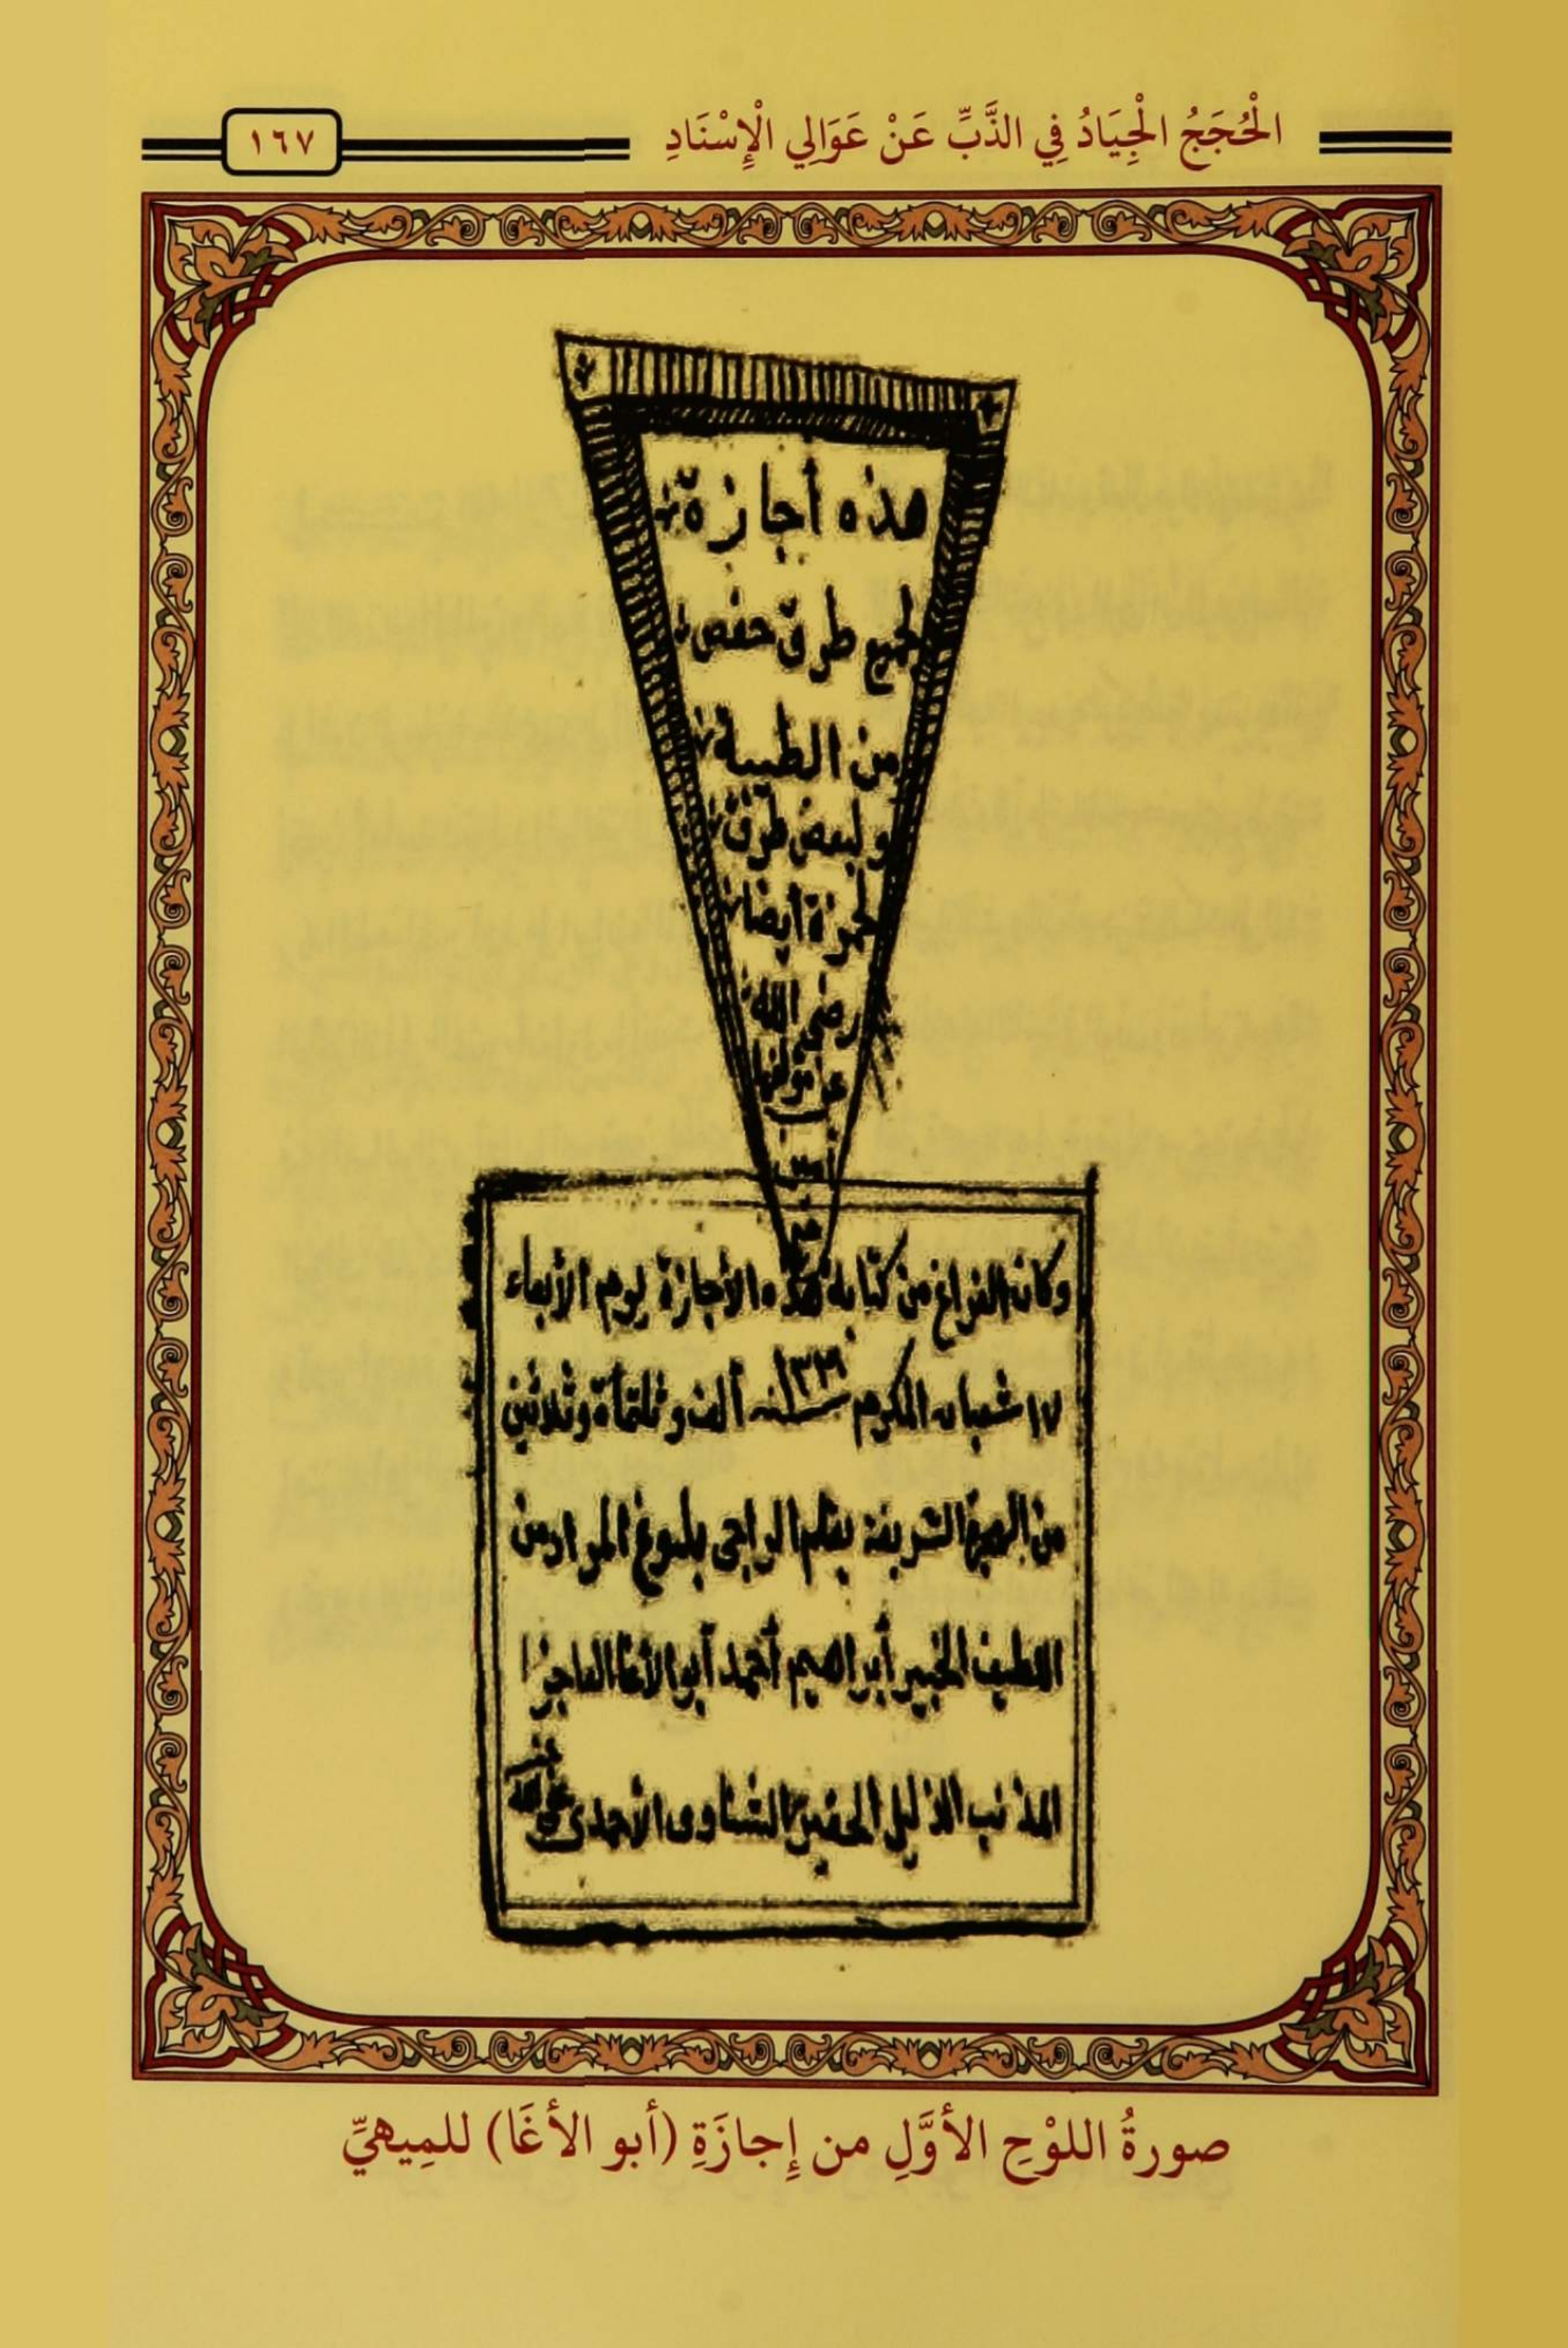 الْحُجَجُ الْجِيَادُ فِي الذَّبِّ عَنْ عَوَالِي الْإِسْنَادِ
١٦٧
هذه أجازة
لجميع طرق حفص
من الطيبة
ولبعض طرق
لحمزة أيضا
رضى الله
عن مؤلفها
أمين
وكان الفراغ من كتابة هذه الأجازة يوم الأربعاء
١٧ شعبان المكرم سنه ألف وثلثمأة وثلاثين
من الهجرة الشريفة بقلم الراجى بلوغ المراد من
اللطيف الخبير أبراهيم أحمد أبو الأغا العاجز
المذنب الذليل الحقير الشناوى الأحمدى
صورةُ اللوْحِ الأوَّلِ من إِجازَةِ (أبو الأغَا) للمِيهيِّ